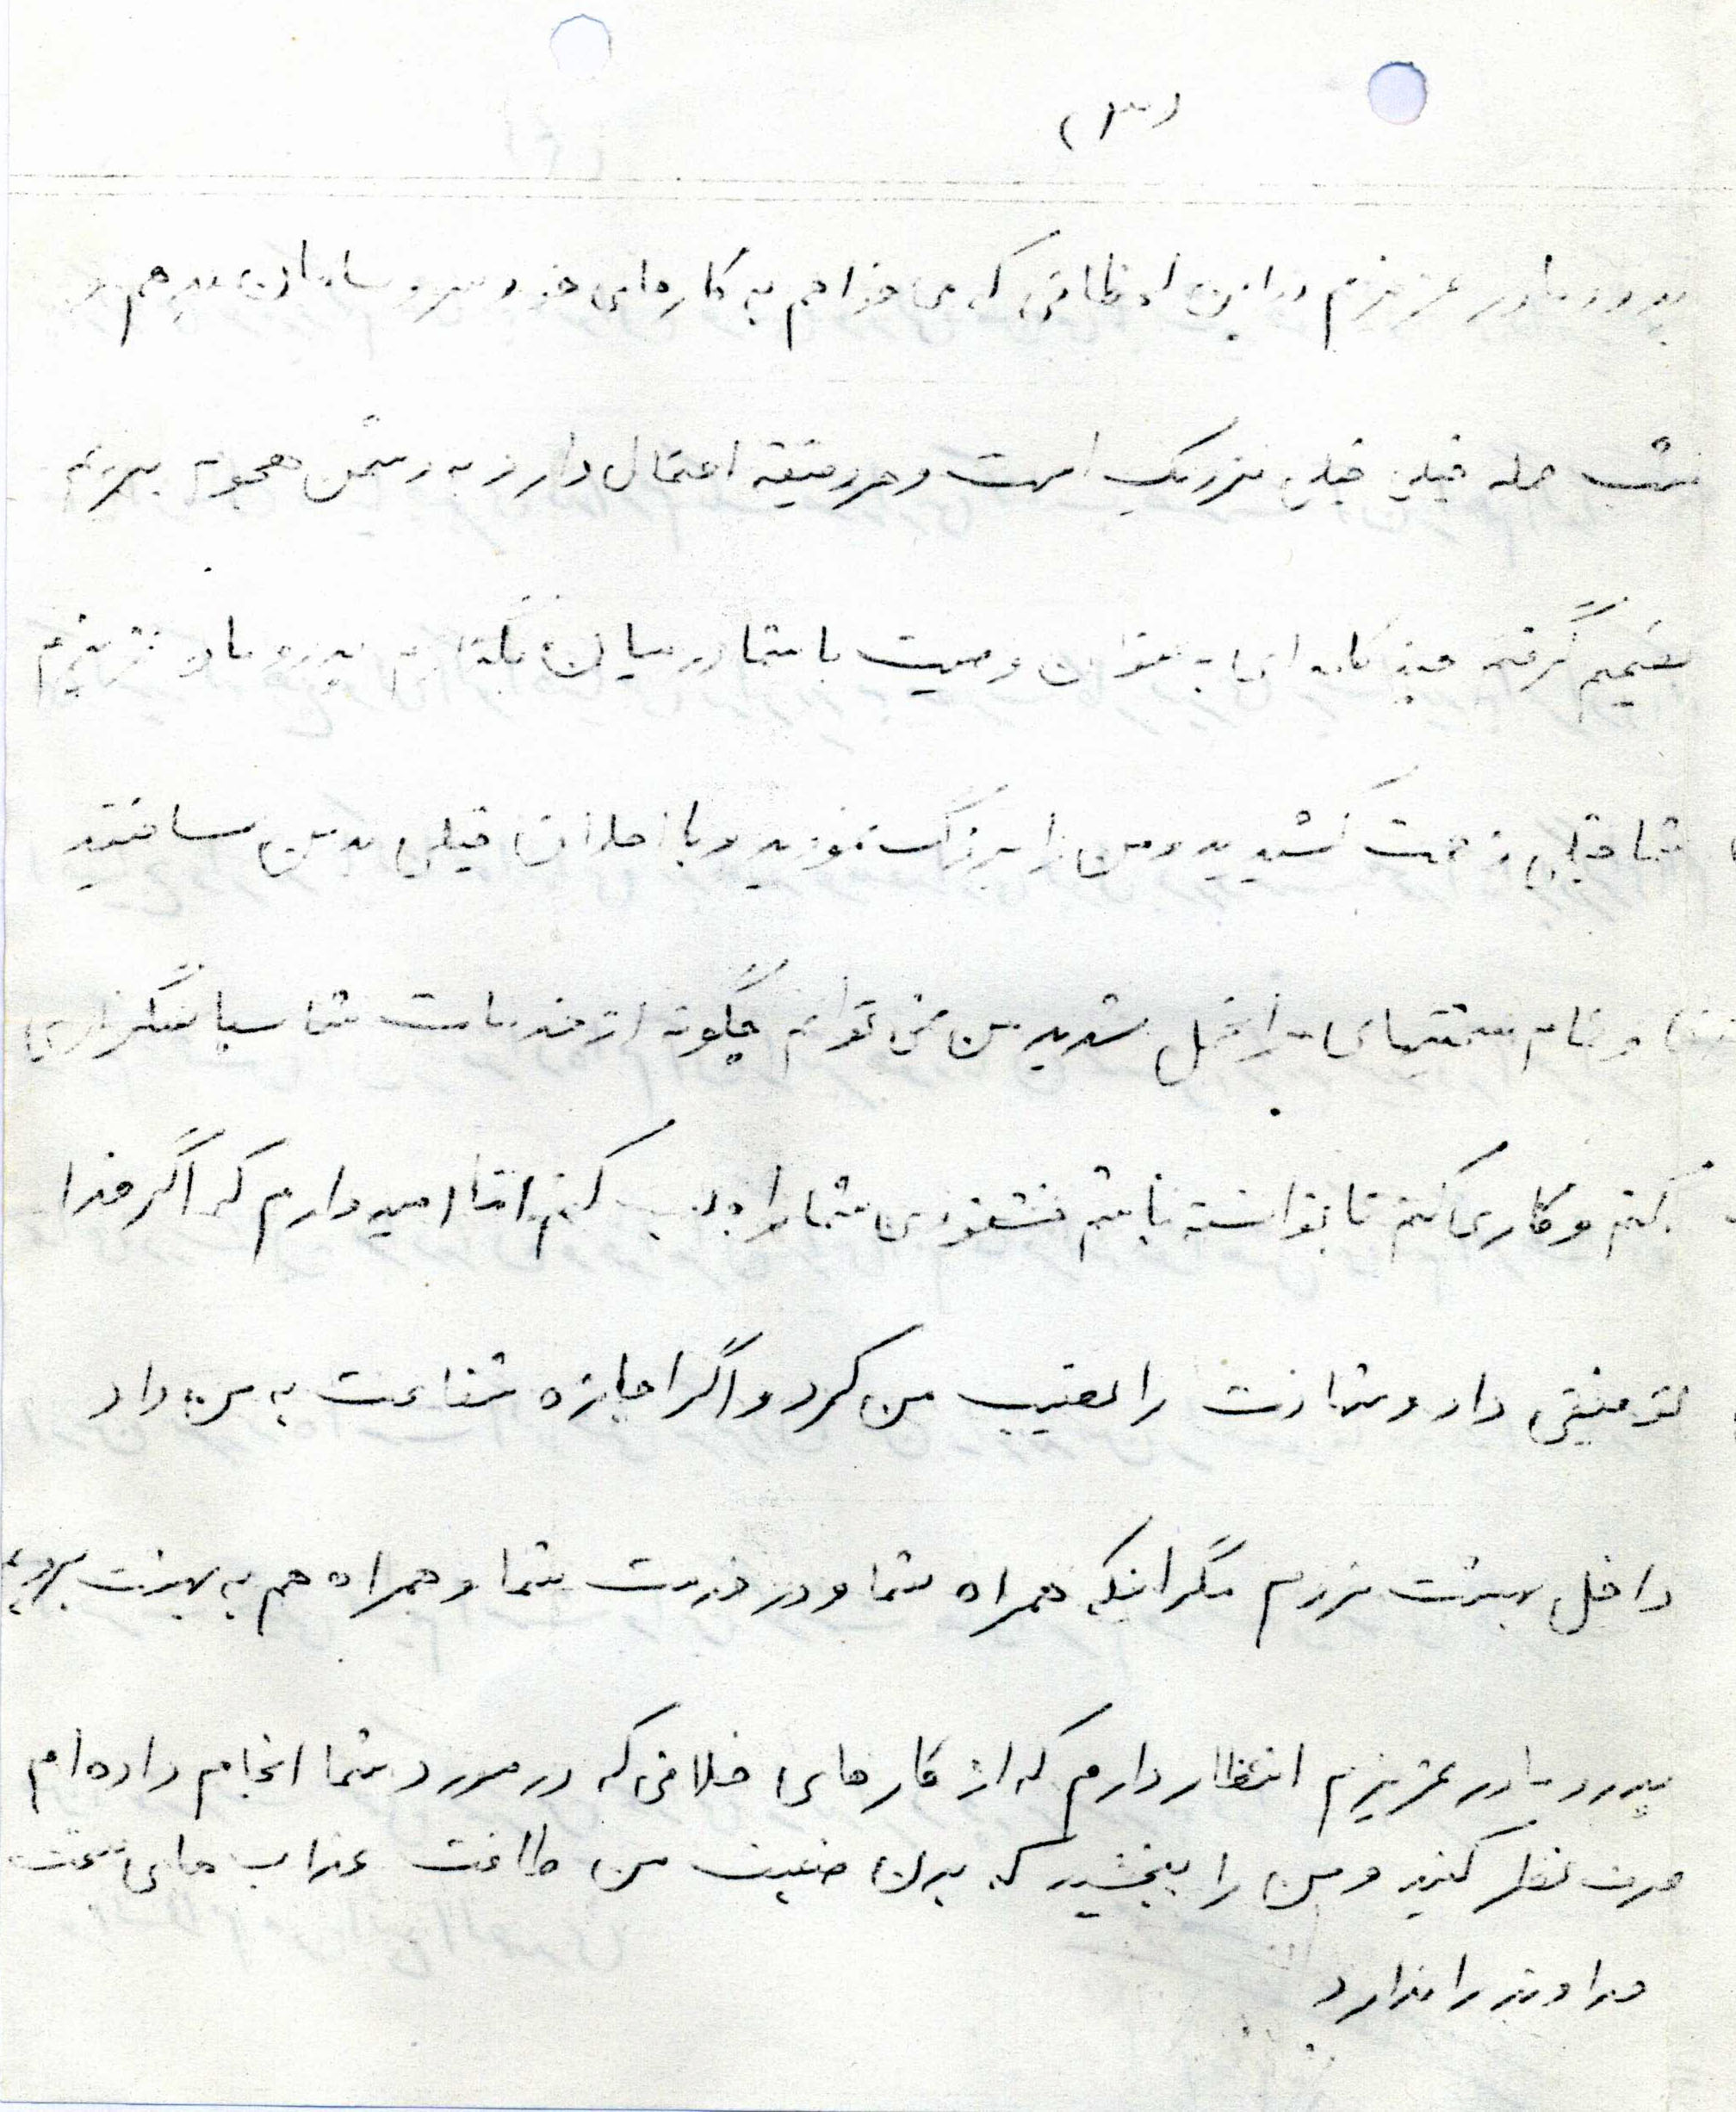 (۳)
پدر و مادر عزیزم در این لحظاتی که می خواهم به کارهای خود سر و سامان بدهم و
شب حمله خیلی خیلی نزدیک است و هر دقیقه احتمال دارد به دشمن هجوم ببریم
تصمیم گرفتم چند کلمه ای به عنوان وصیت با شما در میان بگذارم پدر و مادر عزیزم
شما خیلی زحمت کشیدید و من را بزرگ نمودید و با اخلاق خیلی بد من ساختید
و تمام سختیهای را تحمل شدید من نمی توانم چگونه از خدمات شما سپاسگزاری
بکنم و کاری کنم تا توانسته باشم خشنودی شما را جلب کنم امّا امیدوارم که اگر خدا
توفیقی داد و شهادت را نصیب من کرد و اگر اجازه شفاعت به من داد
داخل بهشت نروم مگر اینکه همراه شما و در خدمت شما و همراه هم به بهشت برویم
پدر و مادر عزیزم انتظار دارم که از کارهای خلافی که در مورد شما انجام داده ام
صرف نظر کنید و من را ببخشید که بدن ضعیف من طاقت عذاب های سخت
خداوند را ندارد